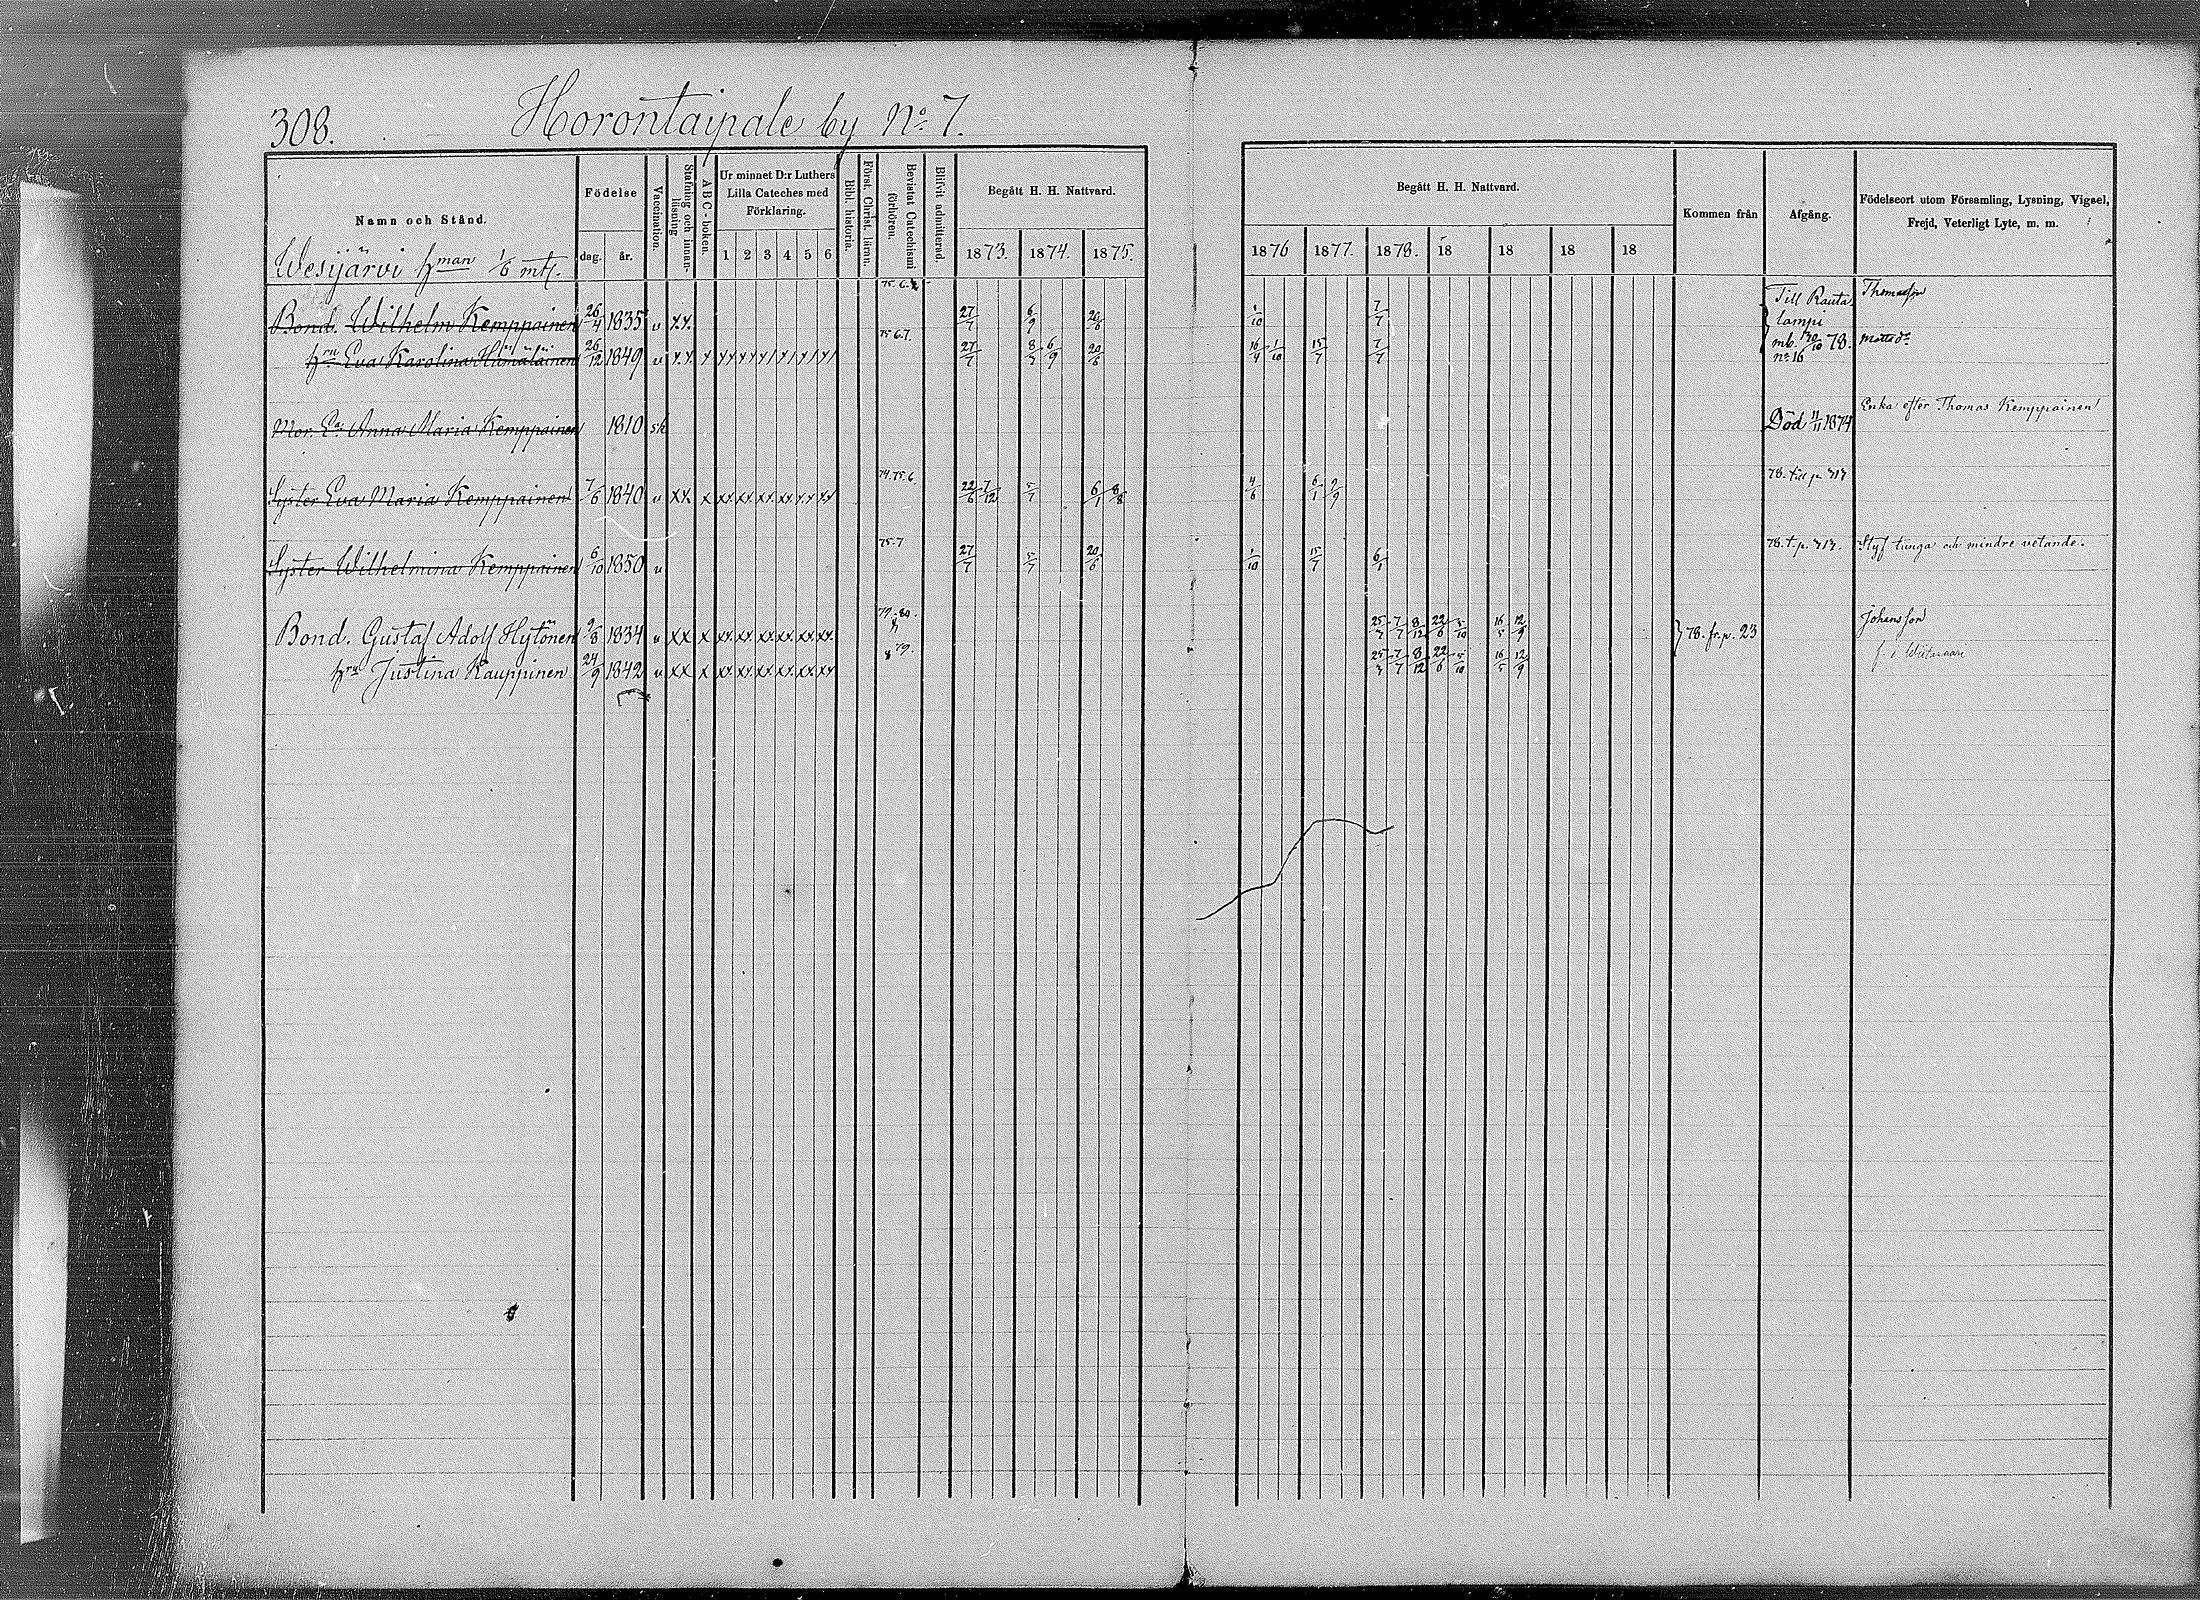 308.
Horontaipale by No. 7.
Namn och Stånd.
Födelse
dag. år.
Vaccination.
Stafning och innan-läsning
ABC-boken.
Ur minnet D:r Luthers
Lilla Cateches med
Förklaring.
1 2 3 4 5 6
Bibl. historia.
Först. Christ. lärun.
Bevistat Catechismi förhören.
Blifvit admitterad.
Begått H. H. Nattvard.
1873. 1874. 1875.
Begått H. H. Nattvard.
1876 1877. 1878. 18 18 18 18
Kommen från
Afgång.
Födelseort utom Församling, Lysning, Vigsel,
Frejd, Veterligt Lyte, m. m.
Wesijärvi hman 1/6 mtl.
75. 6.
Bond. Wilhelm Kemppainen 26/4 1835 v x.x. 27/7 6/9 20/6 1/10 7/7 Till Rauta Thomasson
lampi
75 6.7.
hru Eva Karolina Hämäläinen 26/12 1849 v x.x. x 27/7 6/9 20/6 16/4 1/10 15/7 7/7 mb. 20/10 78.
no 16
Enka efter Thomas Kemppainen
Mor. Ea. Anna Maria Kemppainen 1810 sk Död 11/11 1874
74. 75. 6 78. till p. 717
Syster Eva Maria Kemppainen 7/6 1840 v x.x. x xx. xx. xx. xx. xx. xx 22/6 7/12 5/7 6/1 8/8 4/6 6/1 9/9
75-7 78. t. p. 717. Styf tunga och mindre vetande.
Syster Wilhelmina Kemppainen 6/10 1850 v 27/7 5/7 20/6 1/10 15/7 6/1
79-80.
Bond. Gustaf Adolf Hytönen 9/8 1834 v xx x xx. xx. xx. xx. xx. xx. 25/3 7/7 8/12 22/6 5/10 16/5 12/9 78. fr. p. 23 Johansson
79.
hru Justina Kauppinen 24/9 1842 v xx x xx. xx. xx. xx. xx. xx 25/3 7/7 8/12 22/6 5/10 16/5 12/9 f. i Wiitasaari